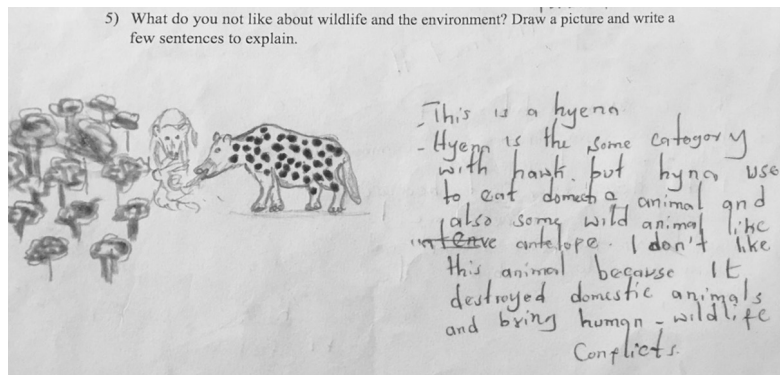 5) What do you not like about wildlife and the environment? Draw a picture and write a
few sentences to explain.
- This is a hyena
- Hyena is the some catogory
with hawk. but hyna use
to eat domect a animal and
also some wild animal like
antelope. I don't like
this animal because It
destroyed domestic animals
and bring human - wildlife
Conflicts.